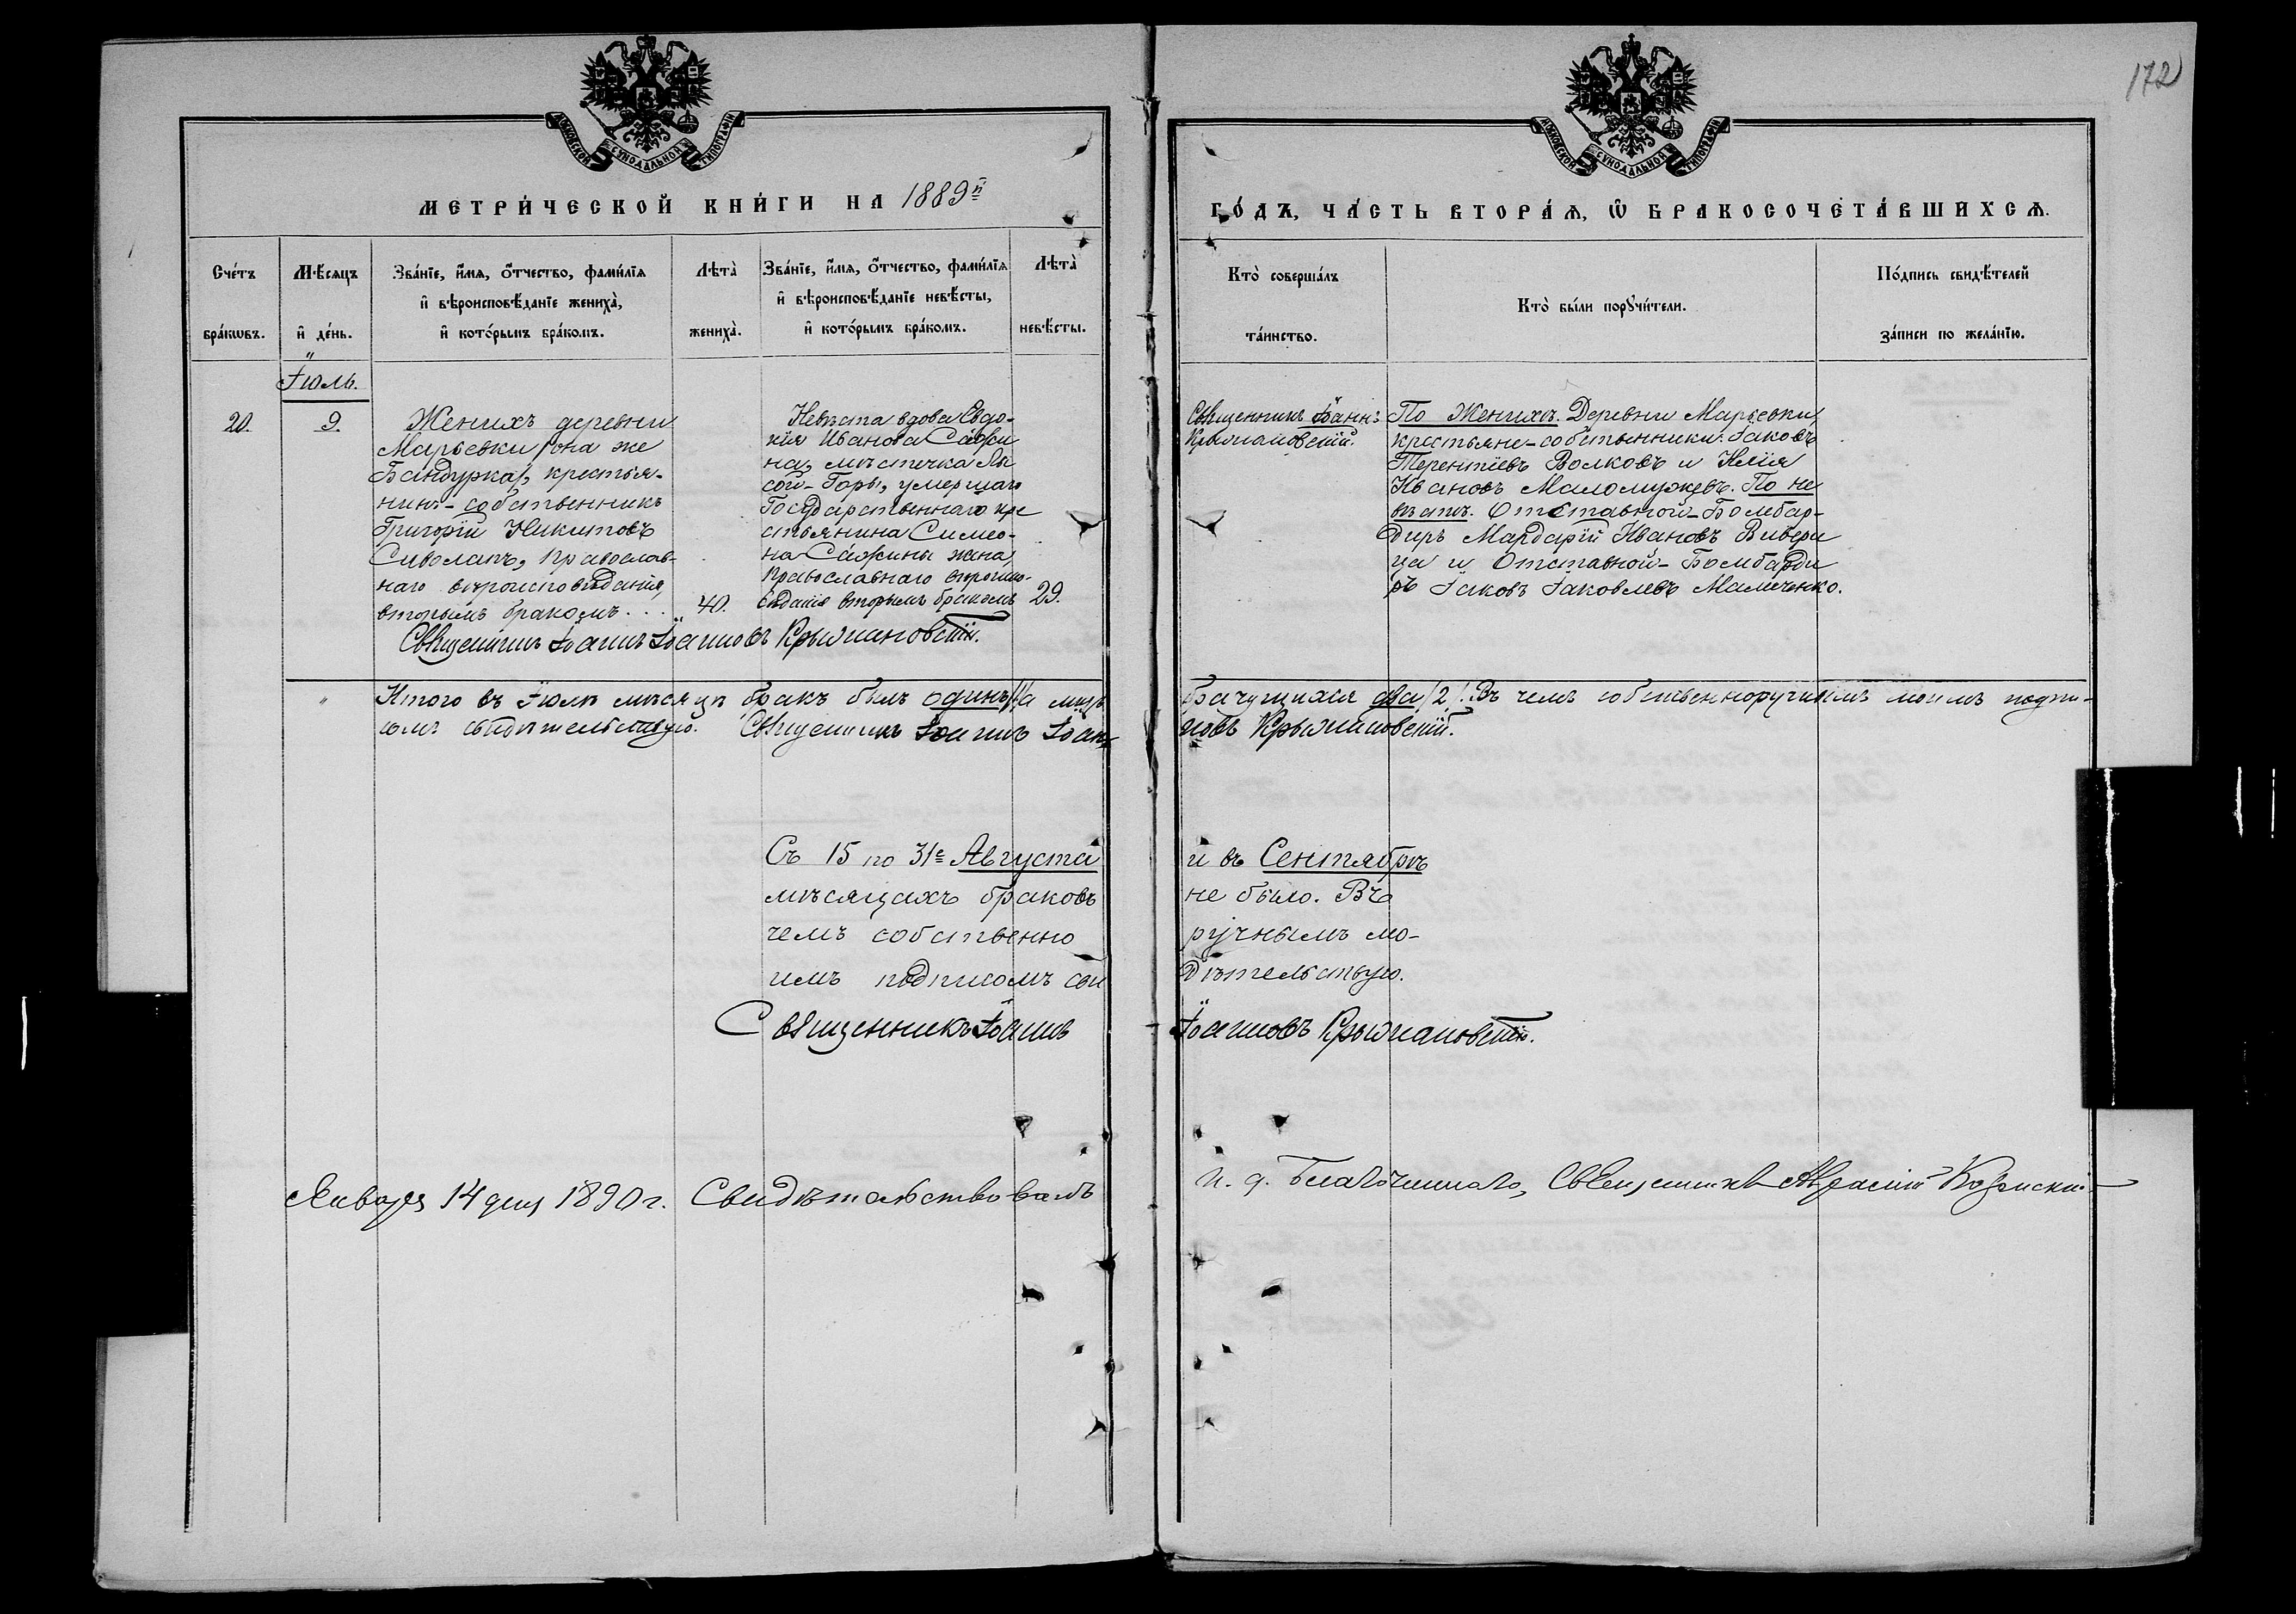 172
МОСКОВСКОЙ СУНОДАЛЬНОЙ ТИПОГРАФІИ
МОСКОВСКОЙ СУНОДАЛЬНОЙ ТИПОГРАФІИ
МЕТРИ́ЧЕСКОЙ КНИ́ГИ НА 1889й
ГО́ДЪ, ЧА́СТЬ ВТОРА́Ѧ, Ѡ БРАКОСОЧЕТА́ВШИХСѦ.
Сче́тъ
бра́кѡвъ.
Мѣ́сяцъ
и҆ де́нь.
Зва́нїе, и҆́мѧ, ѻ҆́тчество, фами́лїѧ
и҆ вѣроисповѣ́данїе жениха̀,
и҆ кото́рымъ бра́комъ.
Лѣта̀
жениха̀.
Зва́нїе, и҆́мѧ, ѻ҆́тчество, фами́лїѧ
и҆ вѣроисповѣ́данїе невѣ́сты,
и҆ кото́рымъ бра́комъ.
Лѣта̀
невѣ́сты.
Кто̀ соверша́лъ
та́инство.
Кто̀ бы́ли порꙋчи́тели.
По́дпись свидѣ́телей
за́писи по жела́нїю.
Іюль.
20.
9.
Женихъ деревни
Марьевки /она же
Бандурка/, крестья-
нинъ-собственникъ
Григорій Никитовъ
Сиволапъ, православ-
наго вѣроисповѣданія,
вторымъ бракомъ . . .
40.
Невѣста вдова Евдо-
кія Иванова Сажи
на, мѣстечка Лы
сой-Горы, умершаго
Государственнаго кре
стьянина Симео-
на Сажины жена,
православнаго вѣроиспо-
вѣданія вторымъ бракомъ
29.
Священникъ Іоаннъ
Крыжановскій.
По Женихѣ. Деревни Марьевки,
крестьяне-собственники: Іаковъ
Терентіевъ Волковъ и Илія
Ивановъ Маломужевъ. По не
вѣстѣ. Отставной-Бомбар-
диръ Мардарій Ивановъ Вивери
ца и Отставной-Бомбарди
ръ Іаковъ Іаковлевъ Мамченко.
Священникъ Іоаннъ Іоанновъ Крыжановскій.
Итого въ Іюлѣ мѣсяцѣ бракъ былъ одинъ /1/, а лицъ брачущихся два /2/. Въ чемъ собственноручнымъ моимъ подпи-
сомъ свидѣтельствую. Священникъ Іоаннъ Іоанновъ Крыжановскій.
Съ 15 по 31е Августа и въ Сентябрѣ
мѣсяцахъ браковъ не было. Въ
чемъ собственно ручнымъ мо-
имъ подписомъ сви дѣтельствую.
Священникъ Іоаннъ Іоанновъ Крыжановскій.
Января 14 дня 1890 г. Свидѣтельствовалъ и. д. Благочиннаго, Священникъ